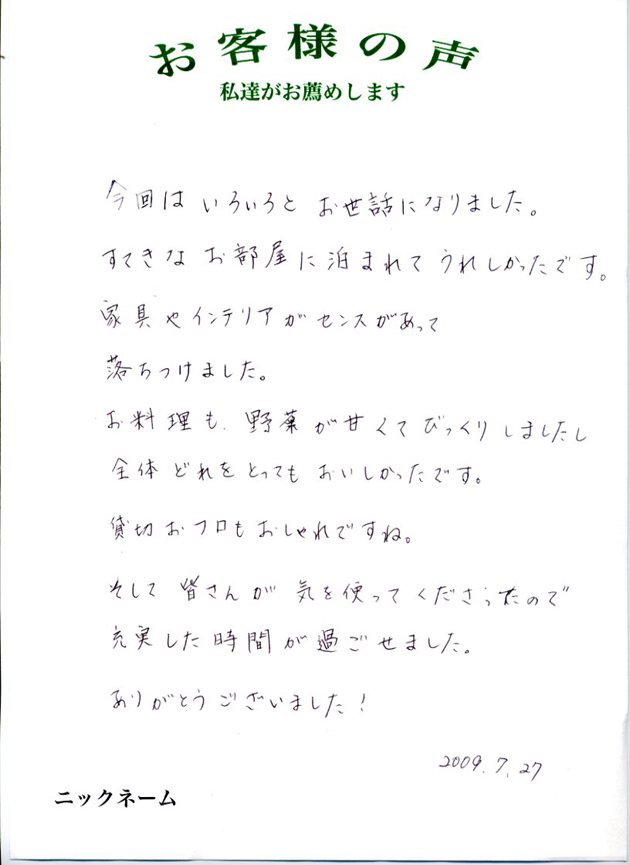 お客様の声
私達がお薦めします
今回は いろいろと お世話になりました。
すてきな お部屋に泊まれて うれしかったです。
家具やインテリアがセンスがあって
落ちつけました。
お料理も、野菜が甘くてびっくりしましたし
全体どれをとっても おいしかったです。
貸切おフロもおしゃれですね。
そして 皆さんが 気を使ってくださったので
充実した時間が過ごせました。
ありがとうございました！
2009.7.27
ニックネーム